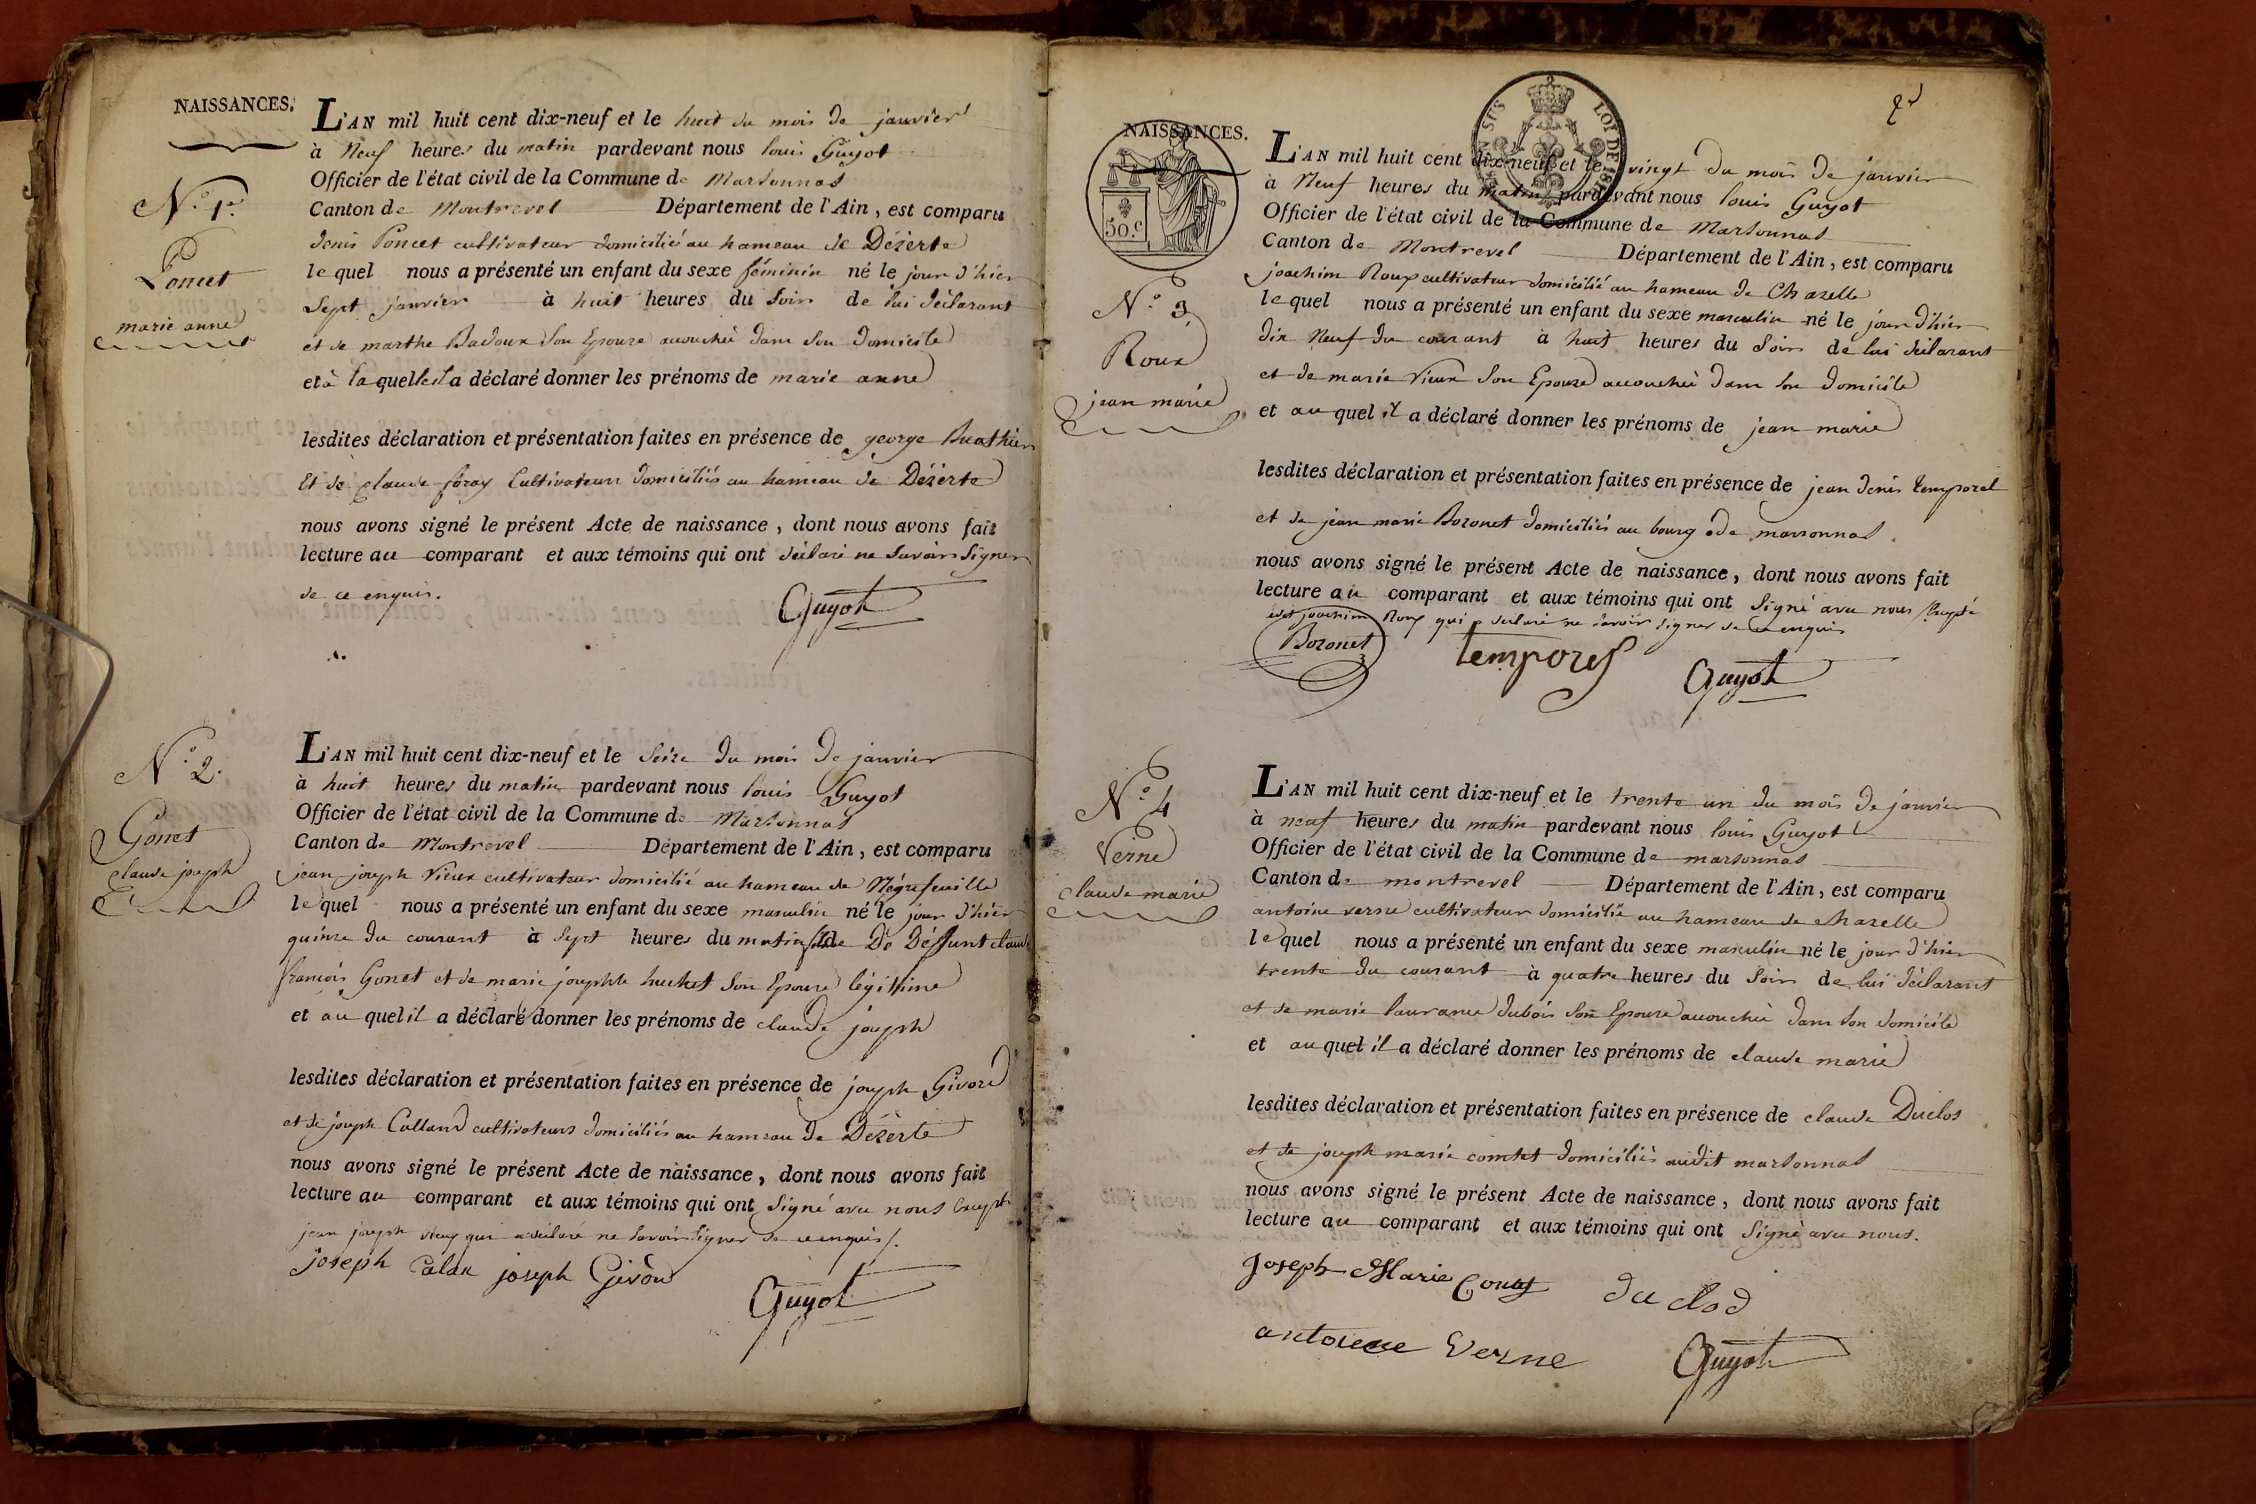 NAISSANCES.
N.º 1er.
Poncet
marie anne
L'AN mil huit cent dix-neuf et le huit du mois de janvier
à Neuf heures du matin pardevant nous louis Guyot
Officier de l'état civil de la Commune de Marsonnas
Canton de Montrevel Département de l'Ain, est comparu
denis Poncet cultivateur domicilié au hameau de Dézerte
lequel nous a présenté un enfant du sexe féminin né le jour d'hier
Sept janvier à huit heures du Soir de lui déclarant
et de marthe Badoux Son Epouse accouchée dans Son Domicile
et à laquelle il a déclaré donner les prénoms de marie anne
lesdites déclaration et présentation faites en présence de george Buathier
Et de claude foray Cultivateurs domiciliés au hameau de Dézerte
nous avons signé le présent Acte de naissance, dont nous avons fait
lecture au comparant et aux témoins qui ont déclaré ne Savoir Signer
de ce enquis.
Guyot
N.º 2.
Gonet
claude joseph
L'AN mil huit cent dix-neuf et le Seize du mois de janvier
à huit heures du matin pardevant nous louis Guyot
Officier de l'état civil de la Commune de Marsonnas
Canton de Montrevel Département de l'Ain, est comparu
jean joseph Vieux cultivateur domicilié au hameau de Négrefeuille
lequel nous a présenté un enfant du sexe masculin né le jour d'hier
quinze du courant à Sept heures du matin De Déffunt claude
françois Gonet et de marie josephte huchet Son Epouse légithime
et au quel il a déclaré donner les prénoms de claude joseph
lesdites déclaration et présentation faites en présence de joseph Givord
et de joseph Calland cultivateurs domiciliés au hameau de Dézerte
nous avons signé le présent Acte de naissance, dont nous avons fait
lecture au comparant et aux témoins qui ont Signé avec nous Excepté
jean joseph Vieux qui a déclaré ne Savoir Signer de ce enquis/.
joseph Calan joseph Givôd
Guyot
2d
NAISSANCES.
LOI DE 18
50.c
N.º 3
Roux
jean marie
L'AN mil huit cent dix-neuf et le vingt du mois de janvier
à Neuf heures du matin pardevant nous louis Guyot
Officier de l'état civil de la Commune de Marsonnas
Canton de Montrevel Département de l'Ain, est comparu
joachim Roux cultivateur domicilié au hameau de Chazelle
lequel nous a présenté un enfant du sexe masculin né le jour d'hier
dix Neuf du courant à huit heures du Soir de lui déclarant
et de marie Vieux Son Epouse accouchée dans Son Domicile
et au quel il a déclaré donner les prénoms de jean marie
lesdites déclaration et présentation faites en présence de jean denis temporel
et de jean marie Bozonet domiciliés au bourg de marsonnas.
nous avons signé le présent Acte de naissance, dont nous avons fait
lecture au comparant et aux témoins qui ont Signé avec nous Excepté
joachim Roux qui a déclaré ne Savoir Signer de ce enquis
Bozonet temporel Guyot
N.º 4
Verne
claude marie
L'AN mil huit cent dix-neuf et le trente un du mois de janvier
à neuf heures du matin pardevant nous louis Guyot
Officier de l'état civil de la Commune de marsonnas
Canton de montrevel Département de l'Ain, est comparu
antoine verne cultivateur domicilié au hameau de chazelle
lequel nous a présenté un enfant du sexe masculin né le jour d'hier
trente du courant à quatre heures du Soir de lui déclarant
et de marie laurance dubois Son Epouse accouchée dans Son domicile
et au quel il a déclaré donner les prénoms de claude marie
lesdites déclaration et présentation faites en présence de claude Duclos
et de joseph marie comtet domiciliés audit marsonnas
nous avons signé le présent Acte de naissance, dont nous avons fait
lecture au comparant et aux témoins qui ont Signé avec nous.
Joseph Marie Contet du clod
antoine Verne Guyot